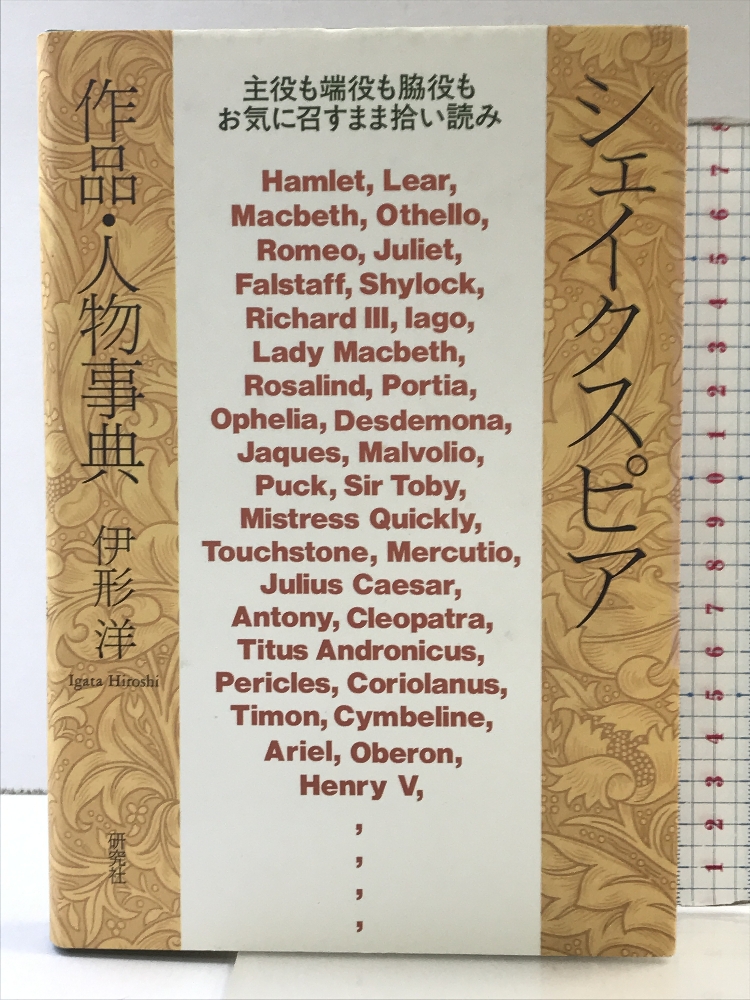 シェイクスピア
作品・人物事典
伊形洋
Igata Hiroshi
研究社
主役も端役も脇役も
お気に召すまま拾い読み
Hamlet, Lear,
Macbeth, Othello,
Romeo, Juliet,
Falstaff, Shylock,
Richard III, Iago,
Lady Macbeth,
Rosalind, Portia,
Ophelia, Desdemona,
Jaques, Malvolio,
Puck, Sir Toby,
Mistress Quickly,
Touchstone, Mercutio,
Julius Caesar,
Antony, Cleopatra,
Titus Andronicus,
Pericles, Coriolanus,
Timon, Cymbeline,
Ariel, Oberon,
Henry V,
,
,
,
,
8
7
6
5
4
3
2
1
0
9
8
7
6
5
4
3
2
1